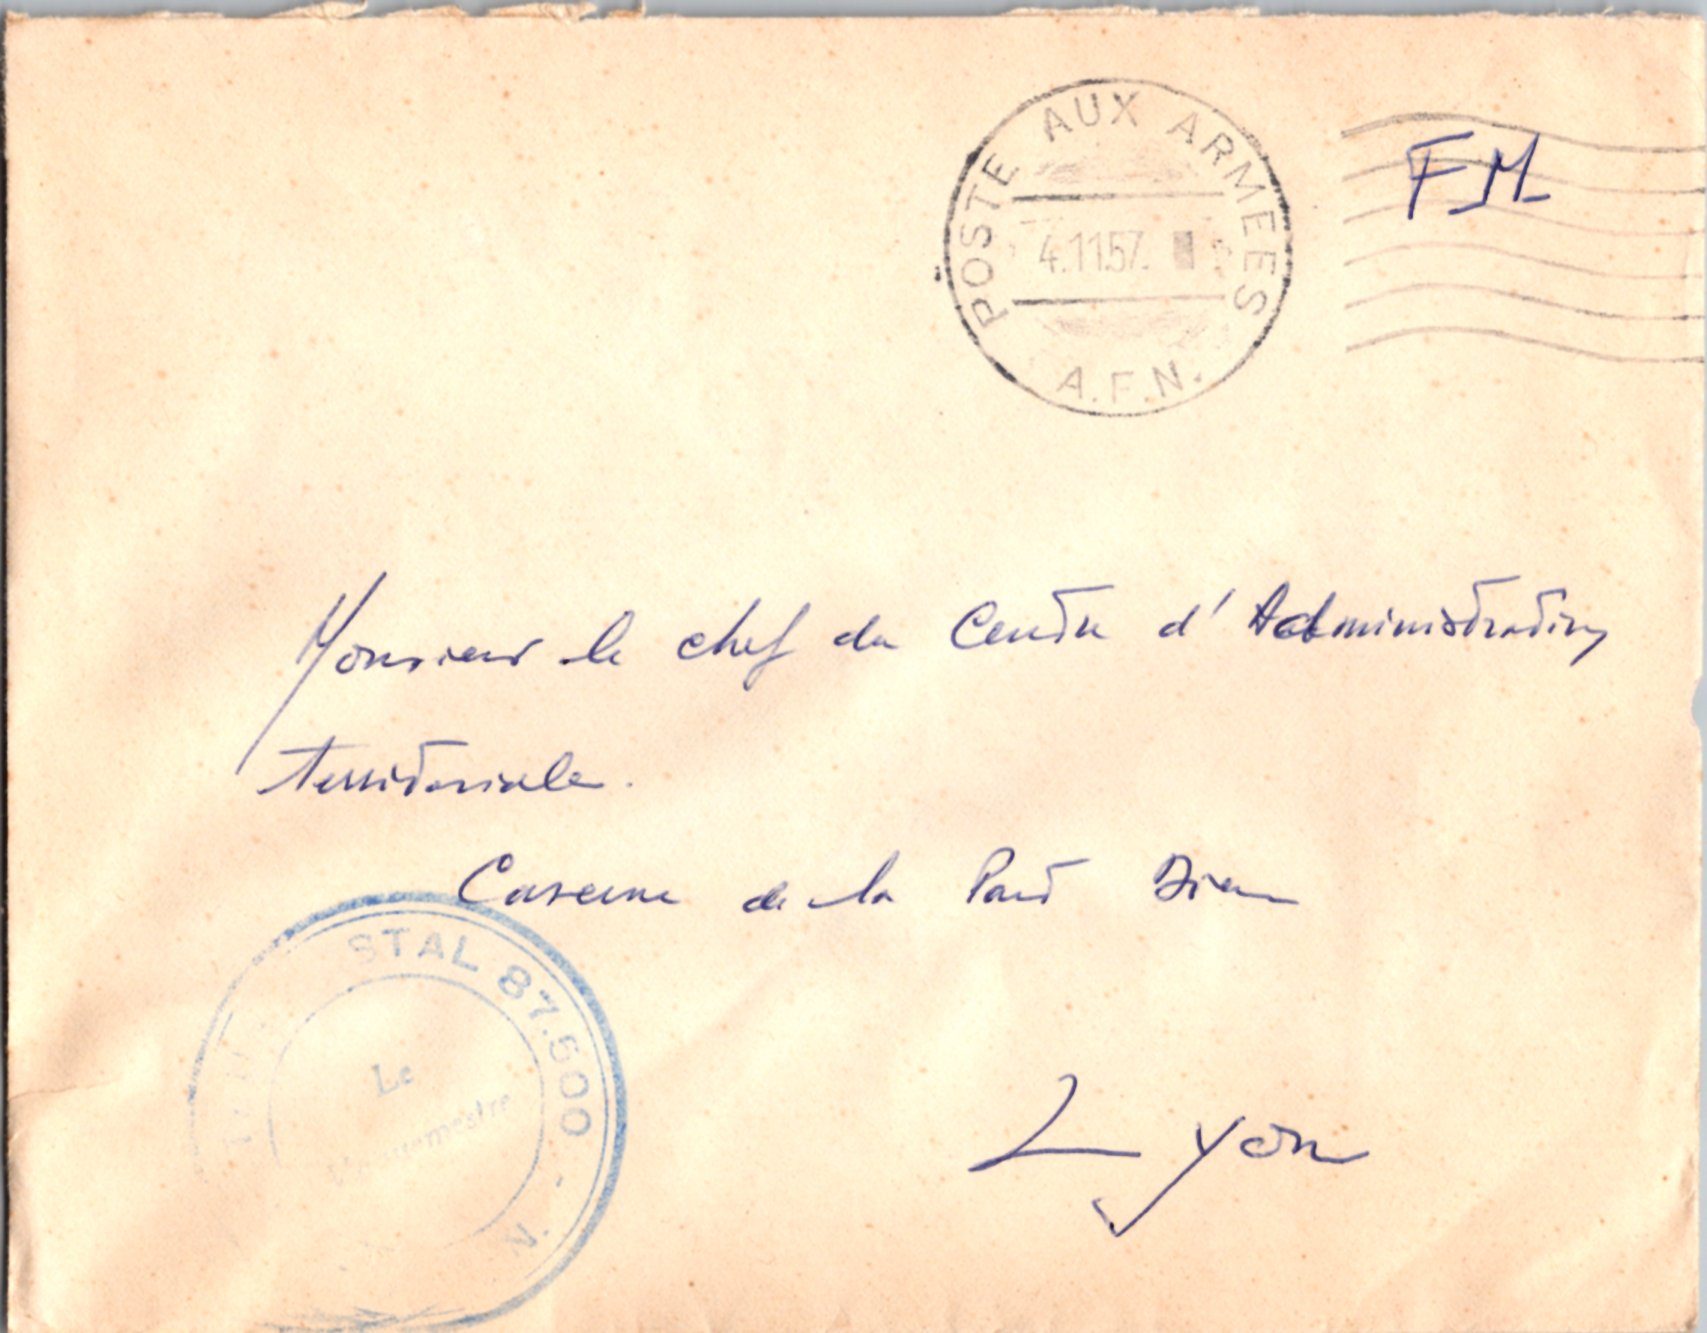 POSTE AUX ARMEES
4.11.57.
A.F.N.
FM
Monsieur le chef du Centre d'Administration
territoriale.
Caserne de la Part Dieu
STAL 87.500 - N.
Le
Lyon